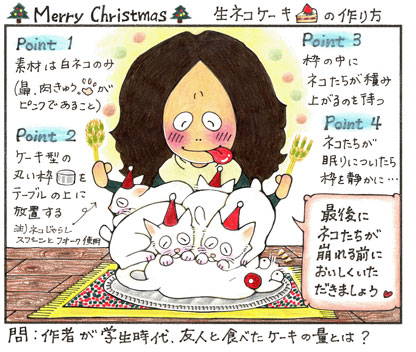 Merry Christmas 生ネコケーキの作り方
Point 1
素材は白ネコのみ
(鼻、肉きゅうが
ピンクであること)
Point 2
ケーキ型の
丸い枠を
テーブルの上に
放置する
注)ネコじゃらし
スプーンとフォーク使用
Point 3
枠の中に
ネコたちが積み
上がるのを待つ
Point 4
ネコたちが
眠りについたら
枠を静かに…
最後に
ネコたちが
崩れる前に
おいしくいた
だきましょう
問:作者が学生時代、友人と食べたケーキの量とは?